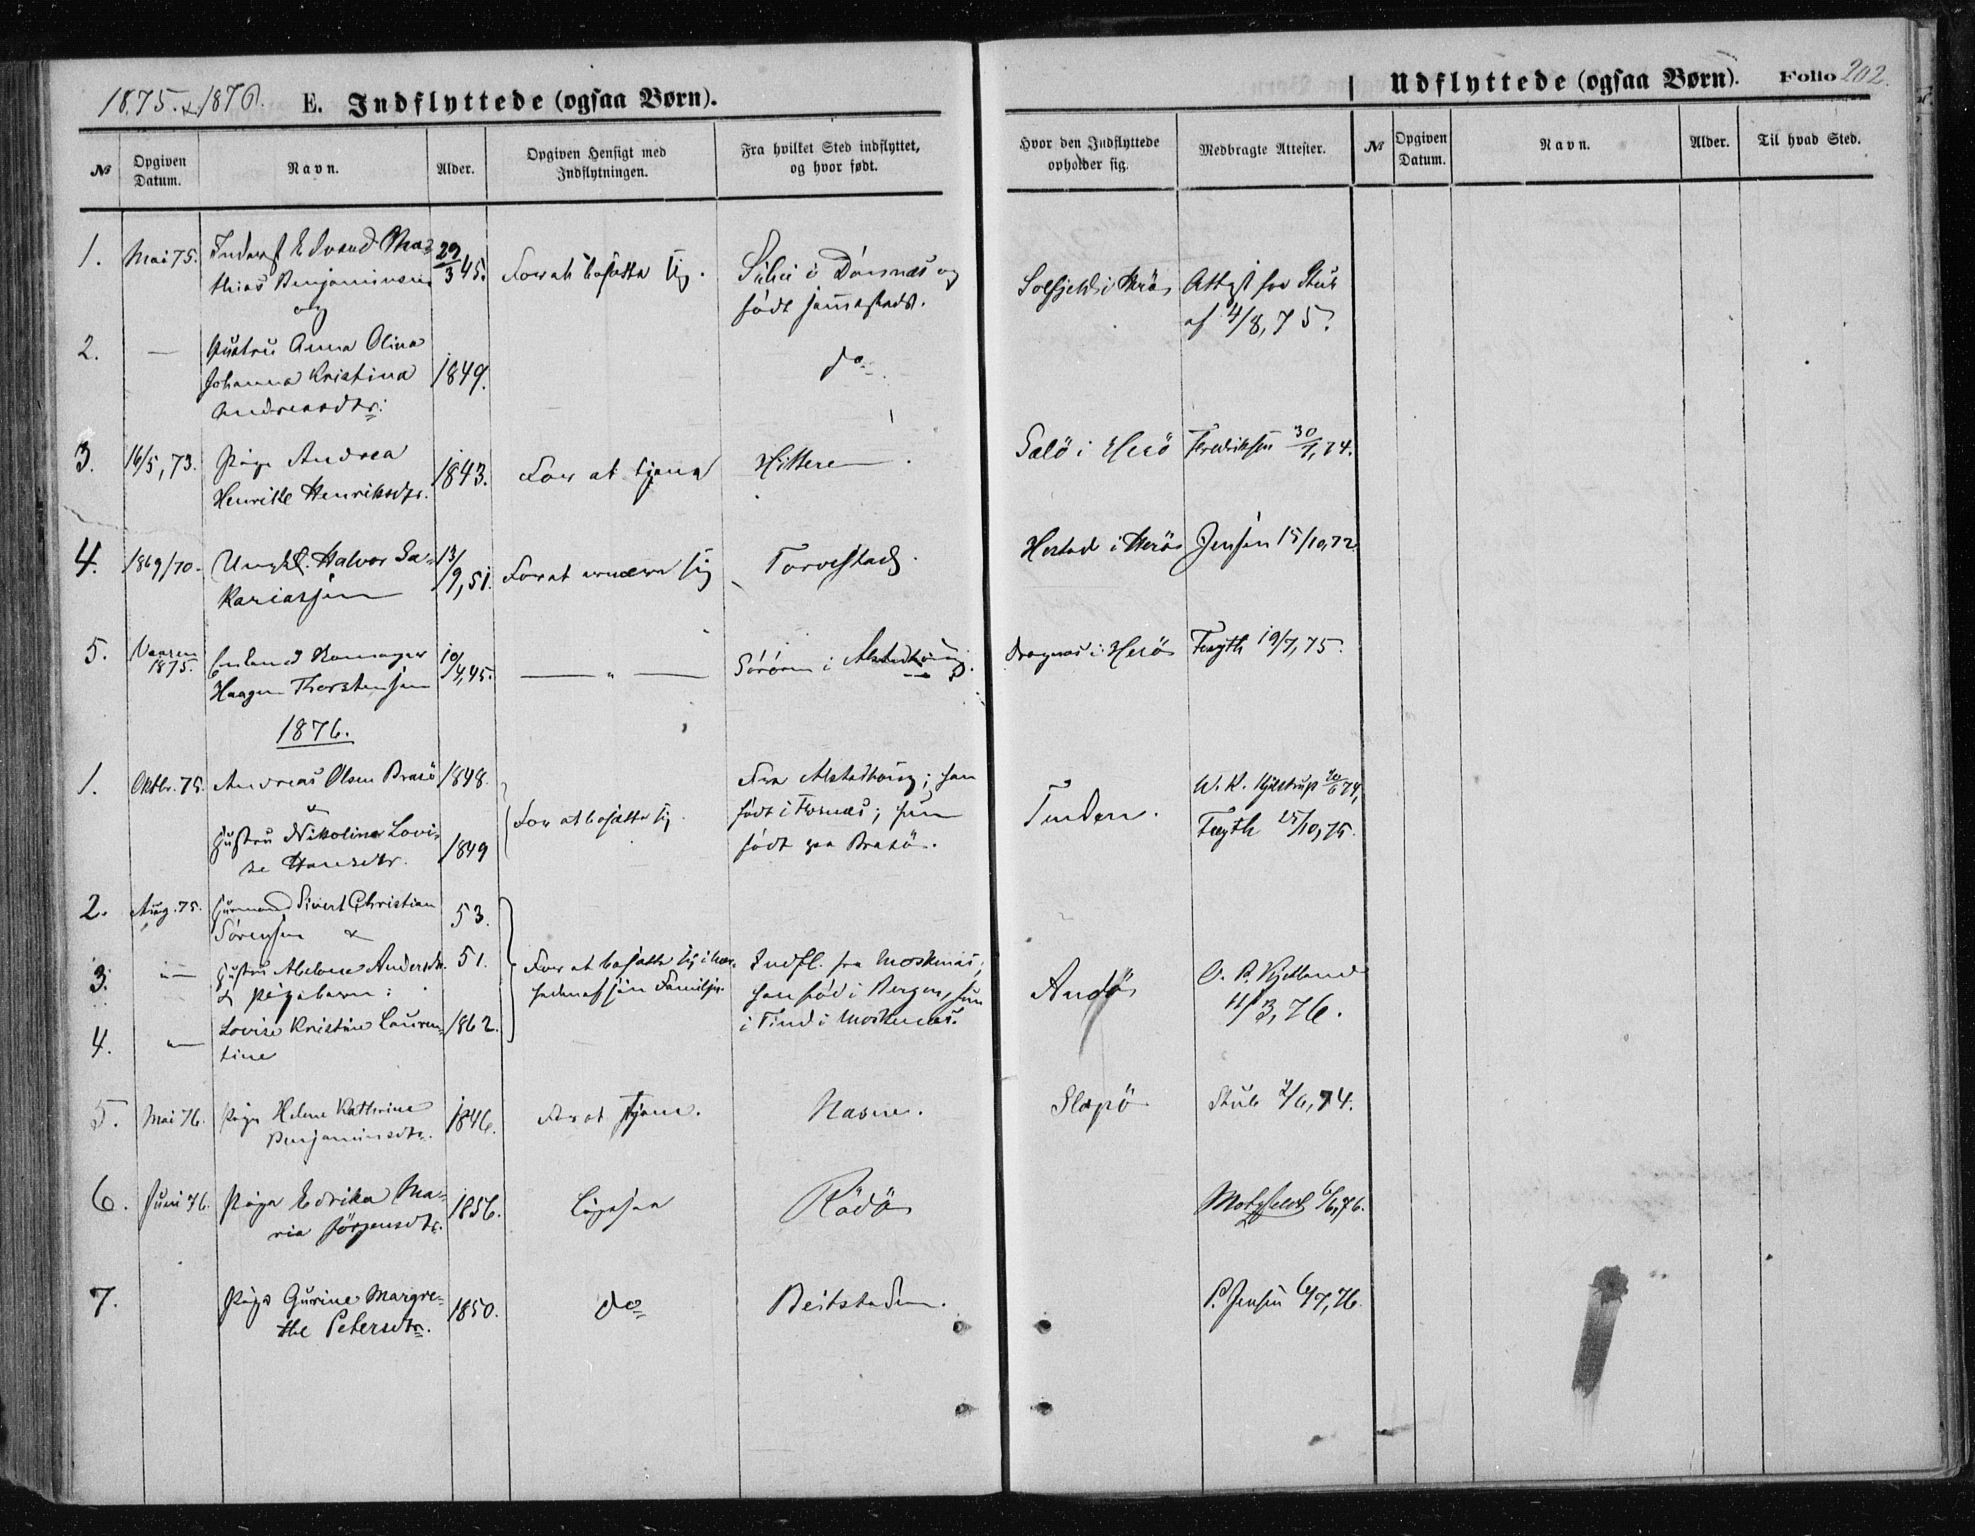 1875 & 1876.
E. Indflyttede (ogsaa Børn).
Udflyttede (ogsaa Børn). Folio 202.
№
Opgiven Datum.
Navn.
Alder.
Opgiven Hensigt med Indflytningen.
Fra hvilket Sted indflyttet, og hvor født.
Hvor den Indflyttede opholder sig.
Medbragte Attester.
№
Opgiven Datum.
Navn.
Alder.
Til hvad Sted.
1. Mai 75. Inderst Edvard Ma- 29/3 45. For at bosætte sig. i Dönnæs og Solfjeld i Herö Attest fra Stub
thias Benjaminsen født sammesteds. af 4/8, 75.
og
2. — Hustru Anna Olina do
Johanna Kristina 1849.
Andreasdtr.
3. 16/5, 73. Pige Andrea 1843. For at tjene Hitteren. i Herö Fredriksen 30/ 74.
Henrikke Henriksdtr.
4. 1869/70. Ungk. Halvor Sa- 13/9, 51. For at ernære sig Torvestad. Hestad i Herö Jensen 15/10, 72.
kariassen
5. Vaaren 1875. Haagen Thorstensen 10/4, 45. — " — i Alstadhoug. i Herö 19/7, 75.
1876.
1. Oktbr. 75. Andreas Olsen Brasö 1848. Fra Alstadhoug; han W. K. Hjelstrup 74,
& For at bosætte sig født i ; hun Tenden. 25/10, 75.
Hustru Nikoline Lovi- 1849 født paa Brasö.
se Hansdtr.
2. Aug. 75. Sivert Christian 53.
Sörensen &
3. " — Hustru Andersdtr. 51. For at bosætte sig i Indfl. fra Moskenæs; O. B.
& pigebarn: sin Familje. han fød i Bergen, hun Andö 4/3, 76.
4. " — Lovise Kristine Lauren- 1862. i Tind i Moskenæs.
tine
5. Mai 76. Pige Helene Kathrine 1846. For at tjene. Næsne. Slapö Stub 2/6, 74.
Benjaminsdtr.
6. Juni 76. Pige Edrika Ma- 1856. Ligesaa Rödö Motzfeldt 6/6, 76.
ria Jörgensdtr.
7. Pige Gurine Margre- 1850. do Beitstaden. P. Jensen 6/7, 76.
the Petersdtr.